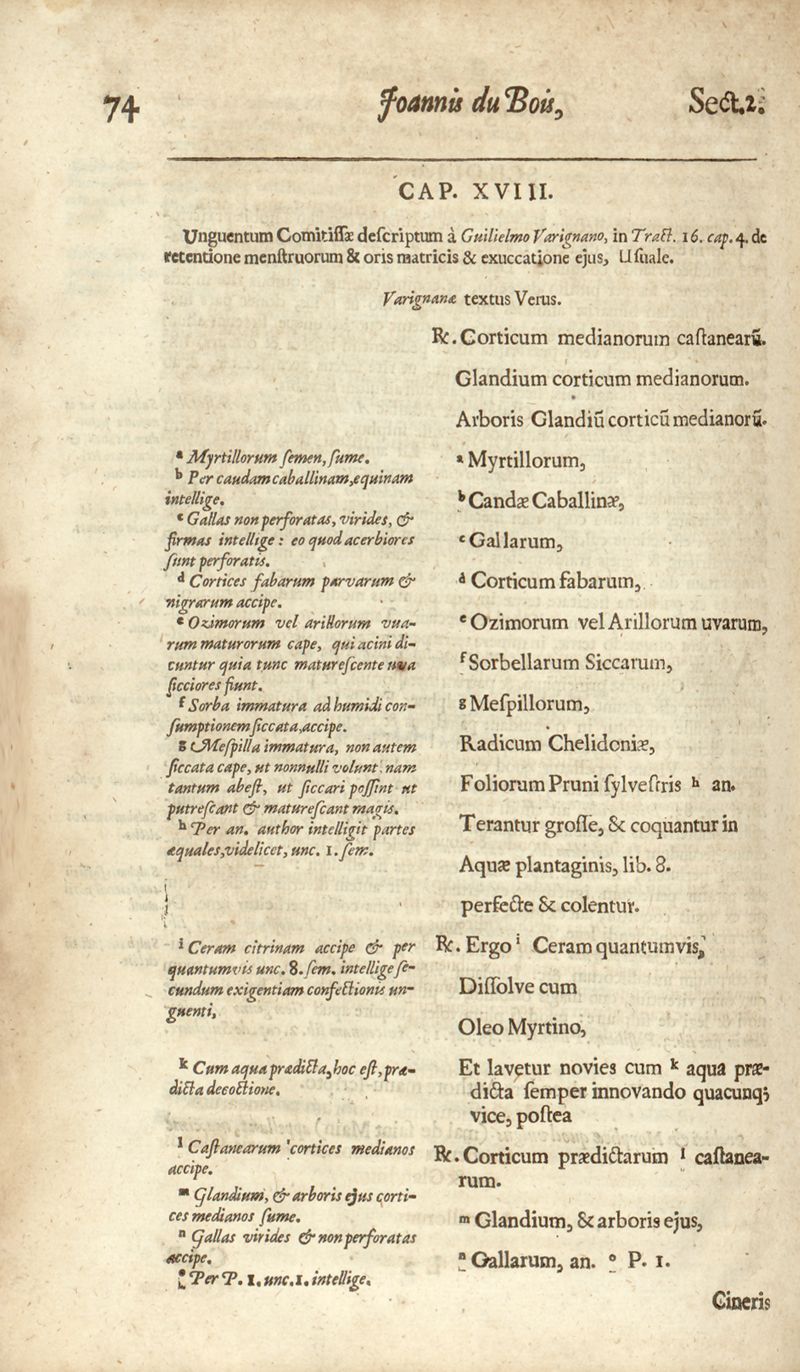 74 Joannis du Bois, Sect.2.
CAP. XVIII.
Unguentum Comitiſſæ deſcriptum à Guilielmo Varignano, in Tract. 16. cap. 4. de
retentione menſtruorum & oris matricis & exuccatione ejus, Uſuale.
Varignanæ textus Verus.
℞. Corticum medianorum caſtanearū.
Glandium corticum medianorum.
Arboris Glandiū corticū medianorū.
ᵃ Myrtillorum ſemen, ſume.
ᵇ Per caudam caballinam, equinam
intellige.
ᶜ Gallas non perforatas, virides, &
firmas intellige: eo quod acerbiores
ſunt perforatis.
ᵈ Cortices fabarum parvarum &
nigrarum accipe.
ᵉ Ozimorum vel arillorum vua-
rum maturorum cape, qui acini di-
cuntur quia tunc matureſcente uva
ſicciores fiunt.
ᶠ Sorba immatura ad humidi con-
ſumptionem ſiccata, accipe.
ᵍ Meſpilla immatura, non autem
ſiccata cape, ut nonnulli volunt: nam
tantum abeſt, ut ſiccari poſſint ut
putreſcant & matureſcant magis.
ʰ Per an. author intelligit partes
æquales, videlicet, unc. 1. ſem.
ᵃ Myrtillorum,
ᵇ Candæ Caballinæ,
ᶜ Gallarum,
ᵈ Corticum fabarum,
ᵉ Ozimorum vel Arillorum uvarum,
ᶠ Sorbellarum Siccarum,
ᵍ Meſpillorum,
Radicum Chelidoniæ,
Foliorum Pruni ſylveſtris ʰ an.
Terantur groſſe, & coquantur in
Aquæ plantaginis, lib. 8.
perfecte & colentur.
ⁱ Ceram citrinam accipe & per
quantumvis unc. 8. ſem. intellige ſe-
cundum exigentiam confectionis un-
guenti,
℞. Ergo ⁱ Ceram quantumvis,
Diſſolve cum
Oleo Myrtino,
ᵏ Cum aqua prædicta, hoc eſt, præ-
dicta decoctione.
Et lavetur novies cum ᵏ aqua præ-
dicta ſemper innovando quacunq;
vice, poſtea
ˡ Caſtanearum cortices medianos
accipe.
ᵐ Glandium, & arboris ejus corti-
ces medianos ſume.
ⁿ Gallas virides & non perforatas
accipe.
ᵒ Per P. 1. unc. 1. intellige.
℞. Corticum prædictarum ˡ caſtanea-
rum.
ᵐ Glandium, & arboris ejus,
ⁿ Gallarum, an. ᵒ P. 1.
Cineris